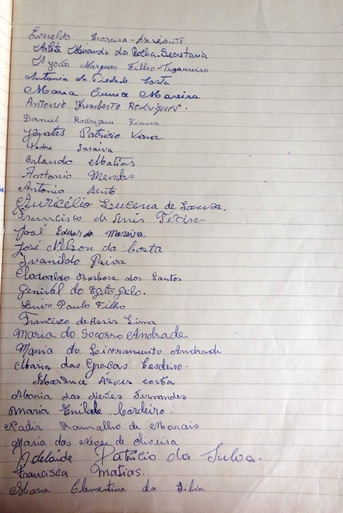 Evnaldo Moreira - Presidente
Arlete Miranda da Rocha - Secretaria
João Marques Filho - Tesoureiro
Antonia da Piedade Costa
Maria Eunice Moreira
Antonio Humberto Rodrigues.
Daniel Rodrigues Viana
Patricio Viana
Pedro Saraiva
Orlando Matias
Antonio Mendes
Antonio Bento
Auricélio Lucena de Souza.
Francisco de Assis
José Eduardo Moreira
José Nelson da Costa
Ivanildo Paiva
Clodoaldo Barbosa dos Santos
Genival do Egito
Luiz Paulo Filho
Francisco de Assis Lima
Maria do Socorro Andrade
Maria do Livramento Andrade
Maria das Graças Cordeiro.
Alves Costa
Maria das Neves Fernandes
Maria Emilade Cordeiro.
Ramalho de Morais
Maria das Neves de Oliveira
Adelaide Patricio da Silva.
Francisca Matias.
Maria Clementina da Silva